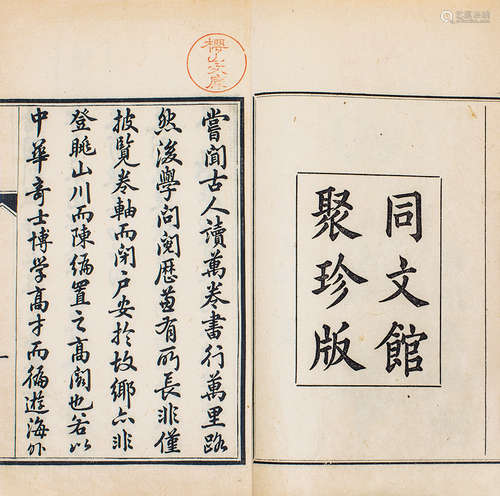 同文館
聚珍版
嘗聞古人讀萬卷書行萬里路
然後學問閱歷萬有所長非僅
披覽卷軸而閉戶安於故鄉亦非
登眺山川而陳編置之高閣也若以
中華奇士博学高才而徧遊海外
櫻山文庫